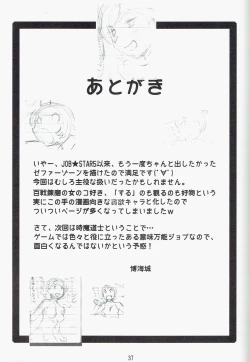 あとがき
いやー、JOB★STARS以来、もう一度ちゃんと出したかった
ゼファーゾーンを描けたので満足です(´∀｀)
今回はむしろ主役な扱いだったかもしれません。
百戦錬磨の女のコ好き、「する」のも観るのも好物という
実にこの手の漫画向きな貪欲キャラと化したので
ついついページが多くなってしまいましたｗ
さて、次回は時魔道士ということで…
ゲームでは色々と役に立ったある意味万能ジョブなので、
面白くなるんではないかという予感！
博海城
37